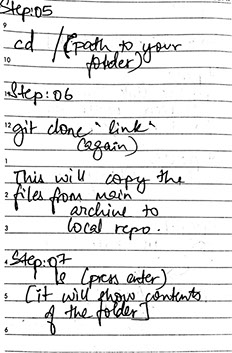 Step:05
9
cd /(path to your
folder)
10
11 Step:06
12 git clone "link"
(again)
1
This will copy the
2 files from main
archive to
3 local repo.
4 Step:07
ls (press enter)
5 [it will show contents
of the folder]
6